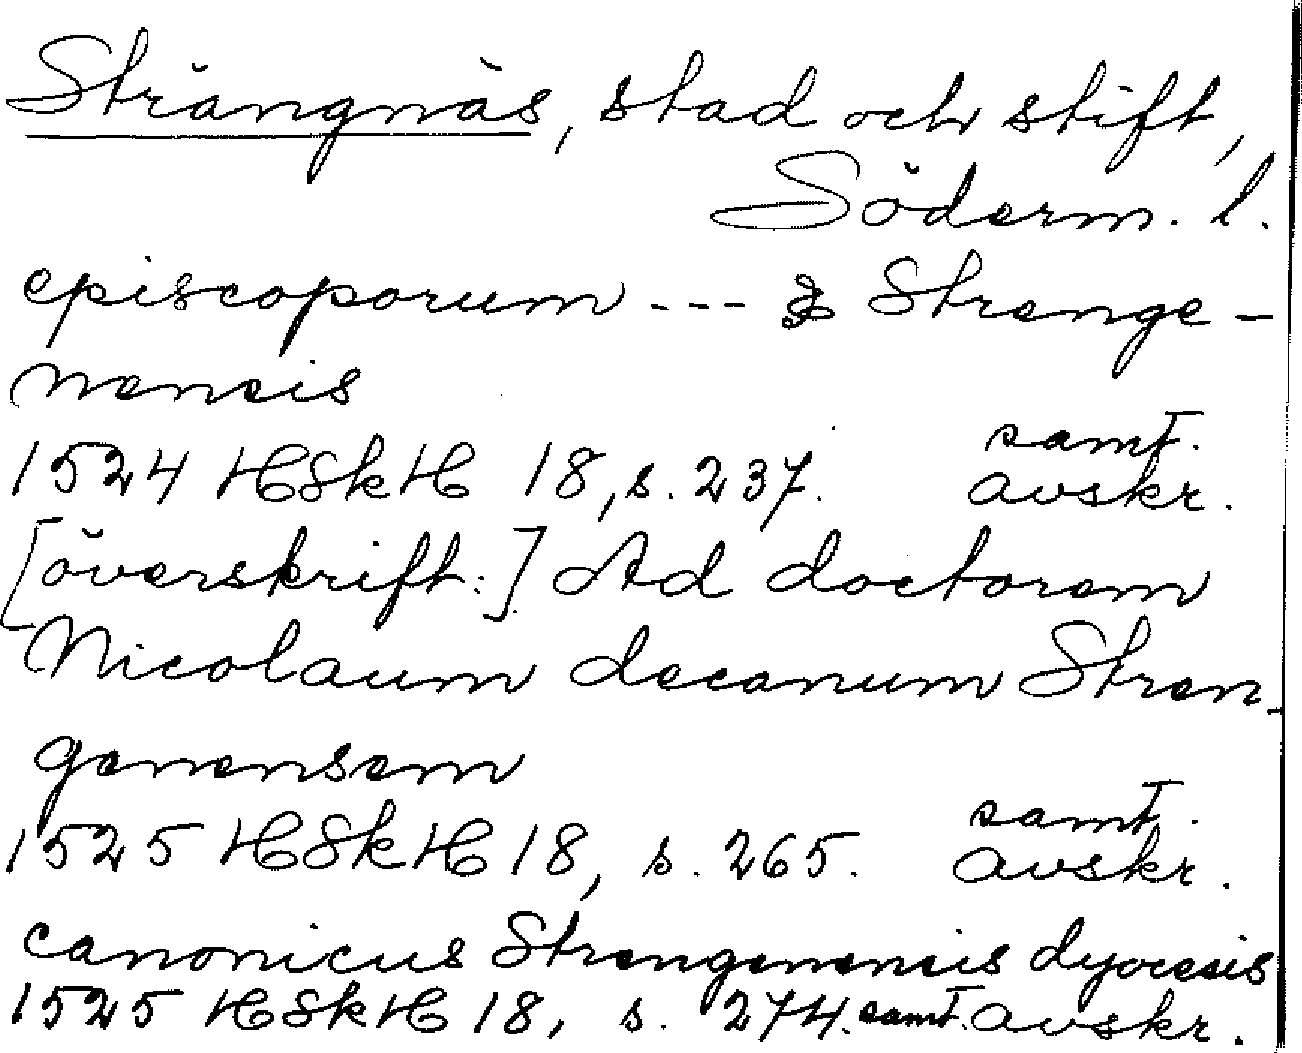 Strängnäs, stad och stift,
Söderm. l.
episcoporum --- & Strenge-
nensis
1524 HSkH 18, s. 237. samt. avskr.
[överskrift:] Ad doctorem
Nicolaum decanum Stren-
genensem
1525 HSkH 18, s. 265. samt. avskr.
canonicus Strengenensis dyocesis
1525 HSkH 18, s. 274. samt. avskr.